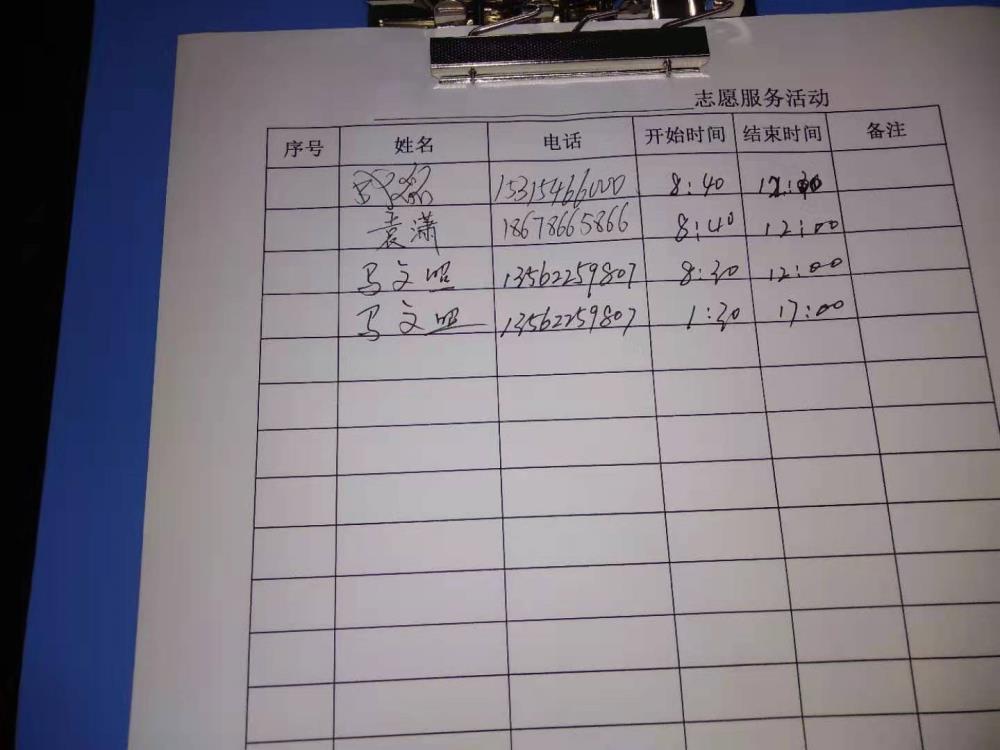 志愿服务活动
序号 姓名 电话 开始时间 结束时间 备注
15315466000 8:40
袁潇 18678665866 8:40 12:00
马文昭 13562259807 8:30 12:00
马文昭 13562259807 1:30 17:00